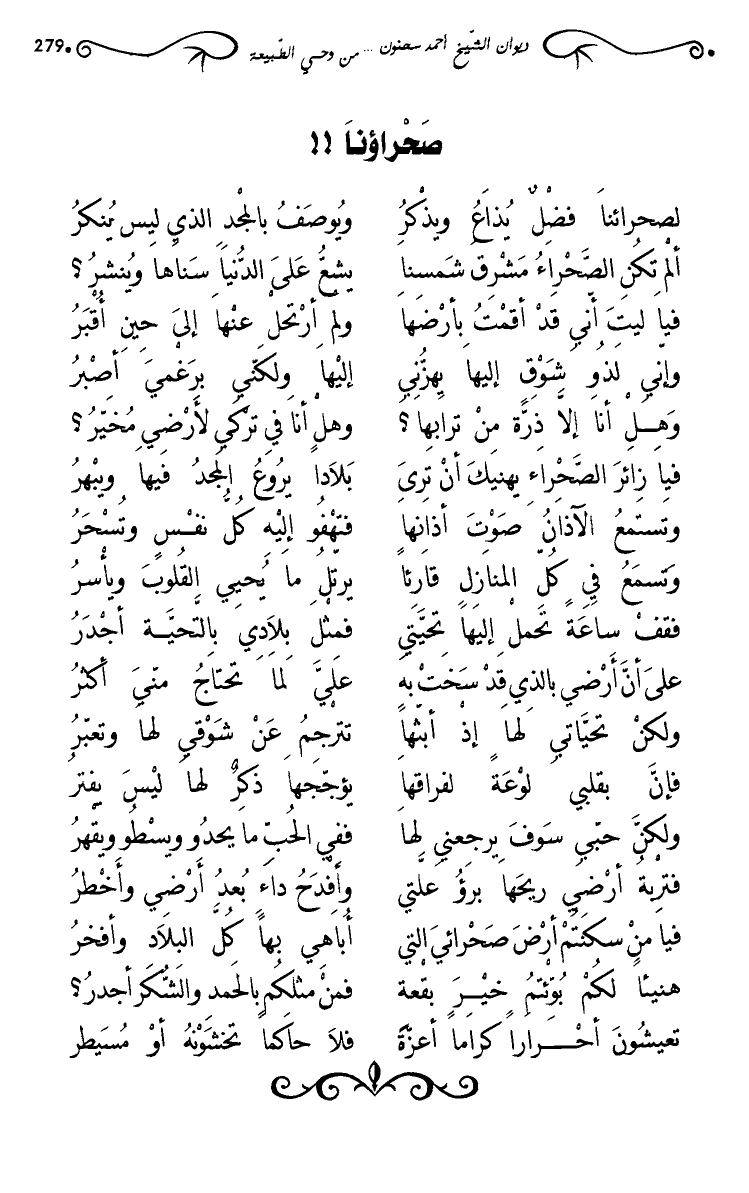 ديوان الشّيخ أحمد سحنون ... من وحي الطّبيعة .279
صَحْراؤنَا !!
لصحرائنا فضْلٌ يُذاعُ ويذْكرُ ويُوصَفُ بالمجْد الذي ليس يُنكرُ
ألمْ تكُنِ الصَّحْراءُ مَشرقَ شمسنا يشعُّ عَلىَ الدُّنيا سَناها ويُنشرُ؟
فيا ليتَ أنّي قدْ أقمْتُ بأرْضهَا ولمْ أرْتحلْ عنْها إلىَ حينِ أُقْبَرُ
وإني لذُو شَوْقٍ إليها يهزُّني إليْها ولكنّي برَغْميَ أصْبرُ
وَهـلْ أنا إلاّ ذرَّة منْ ترابها؟ وهلْ أنا في ترْكي لأَرْضي مُخيّرُ؟
فيا زائرَ الصَّحْراء يهنيكَ أنْ ترىَ بَلاداً يرُوعُ المجْدُ فيها ويبْهرُ
وتستمعُ الآذانُ صَوْتَ أذانِها فتهْفُو إليْهِ كلُّ نفْـسٍ وتُسْحَرُ
وَتسمَعُ في كلّ المنازل قارئا يرتلُ ما يُحيي القلوبَ ويأسرُ
فقفْ ساعَةً تحملْ إليهَا تحيّتي فمثْلُ بلادي بالتّحيَّـة أجْدَرُ
علىَ أنَّ أَرْضي بالذي قدْ سَختْ به عَليَّ لمَا تحتاجُ منّيَ أكثرُ
ولكنْ تحيَّاتي لها إذْ أبثّها تترْجمُ عَنْ شَوْقي لها وتعبّرُ
فإنَّ بقلبي لوْعَةً لفراقها يؤجّجها ذكرٌ لها ليْسَ يفترُ
ولكنَّ حبّي سَوفَ يرجعني لها ففي الحُبّ ما يحدُو ويسْطُو ويقْهرُ
فتربةُ أرْضي ريحَها برؤُ علتي وأفدَحُ داءٍ بُعدُ أَرْضي وأَخْطرُ
فيا منْ سكنتمْ أرْضَ صَحْرائيَ التي أُباهي بهاَ كلَّ البلاد وأفخرُ
هنيئا لكُمْ بُوّئتمُ خيْـرَ بقْعة فمنْ مثلكم بالحمد والشّكر أجدرُ؟
تعيشُونَ أحْـراراً كراماً أعزّةً فلاَ حاكماً تخشَوْنهُ أوْ مُسَيطر